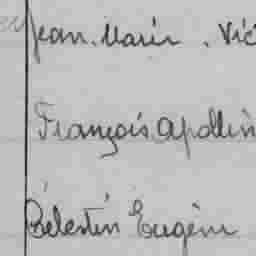 Jean. Marie . Vic
François Apollin
Célestin Eugène